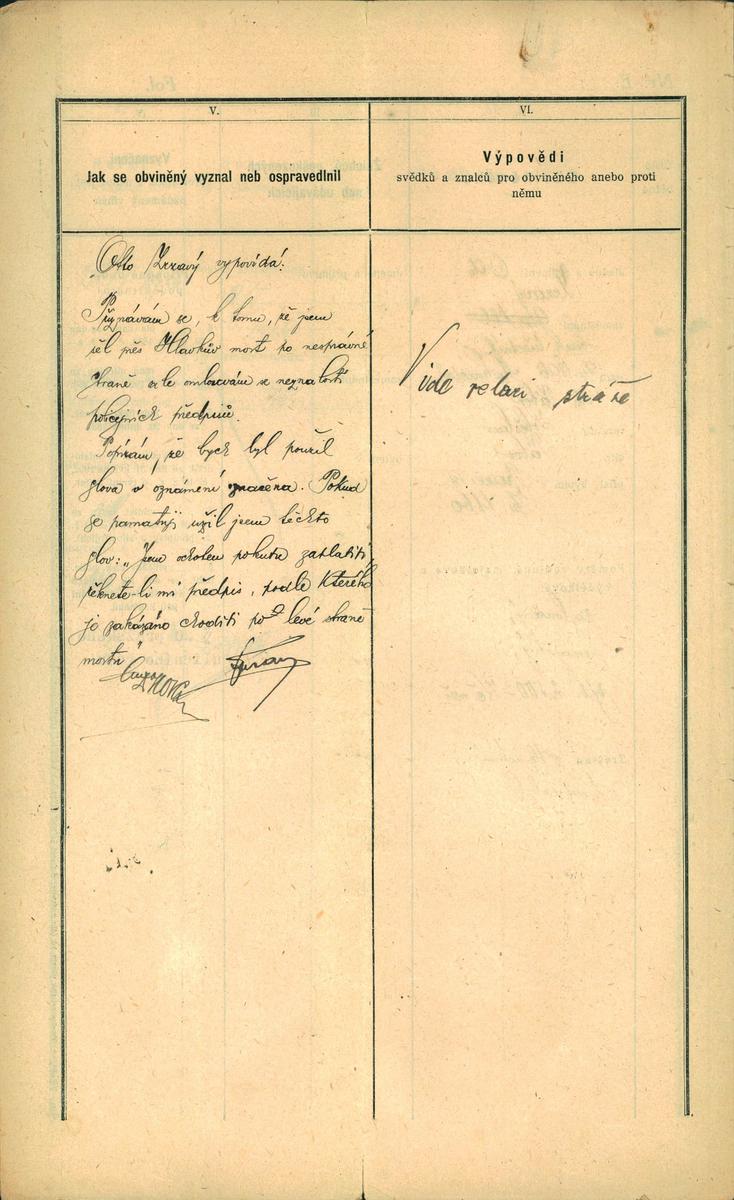 V.
Jak se obviněný vyznal neb ospravedlnil
Otto Zrzavý vypovídá:
Přiznávám se, k tomu, že jsem
šel přes Hlavkův most po nesprávné
straně ale omlouvám se neznalostí
policejních předpisů.
Popírám, že bych byl použil
slova v oznámení značena. Pokud
se pamatuji užil jsem těchto
slov: „Jsem ochoten pokutu zaplatiti,
řeknete-li mi předpis, podle kterého
je zakázáno choditi po levé straně
mostu"
VI.
Výpovědi
svědků a znalců pro obviněného anebo proti
němu
Vide relaci stráže